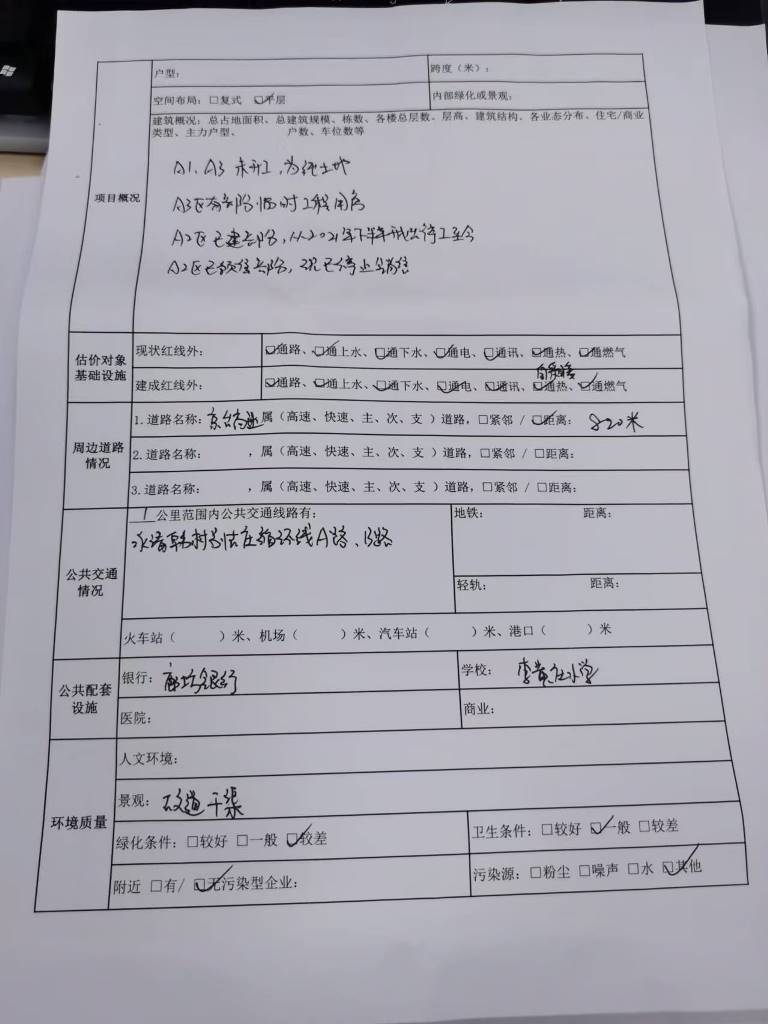 户型：
跨度（米）：
空间布局：□复式 ☑平层
内部绿化或景观：
项目概况
建筑概况：总占地面积、总建筑规模、栋数、各楼总层数、层高、建筑结构、各业态分布、住宅/商业
类型、主力户型、 户数、车位数等
A1、A3 未开工，为纯土地
A3区有部分临时工程用房
A2区已建部分，从2021年下半年 停工至今
A2区已预售部分，现已停止销售
估价对象
基础设施
现状红线外：
☑通路、☑通上水、☑通下水、☑通电、☑通讯、☑通热、☑通燃气
建成红线外：
☑通路、☑通上水、☑通下水、☑通电、☑通讯、☑通热、☑通燃气
周边道路
情况
1.道路名称：京台高速属（高速、快速、主、次、支 ）道路，□紧邻 / ☑距离： 820米
2.道路名称： ，属（高速、快速、主、次、支 ）道路，□紧邻 / □距离：
3.道路名称： ，属（高速、快速、主、次、支 ）道路，□紧邻 / □距离：
公共交通
情况
1 公里范围内公共交通线路有：
永清韩村 循环线A路、B路
地铁： 距离：
轻轨： 距离：
火车站（ ）米、机场（ ）米、汽车站（ ）米、港口（ ）米
公共配套
设施
银行：廊坊银行
学校：李黄庄小学
医院：
商业：
环境质量
人文环境：
景观：故道干渠
绿化条件：□较好 □一般 ☑较差
卫生条件：□较好 ☑一般 □较差
附近 □有/ ☑无污染型企业：
污染源：□粉尘 □噪声 □水 ☑其他